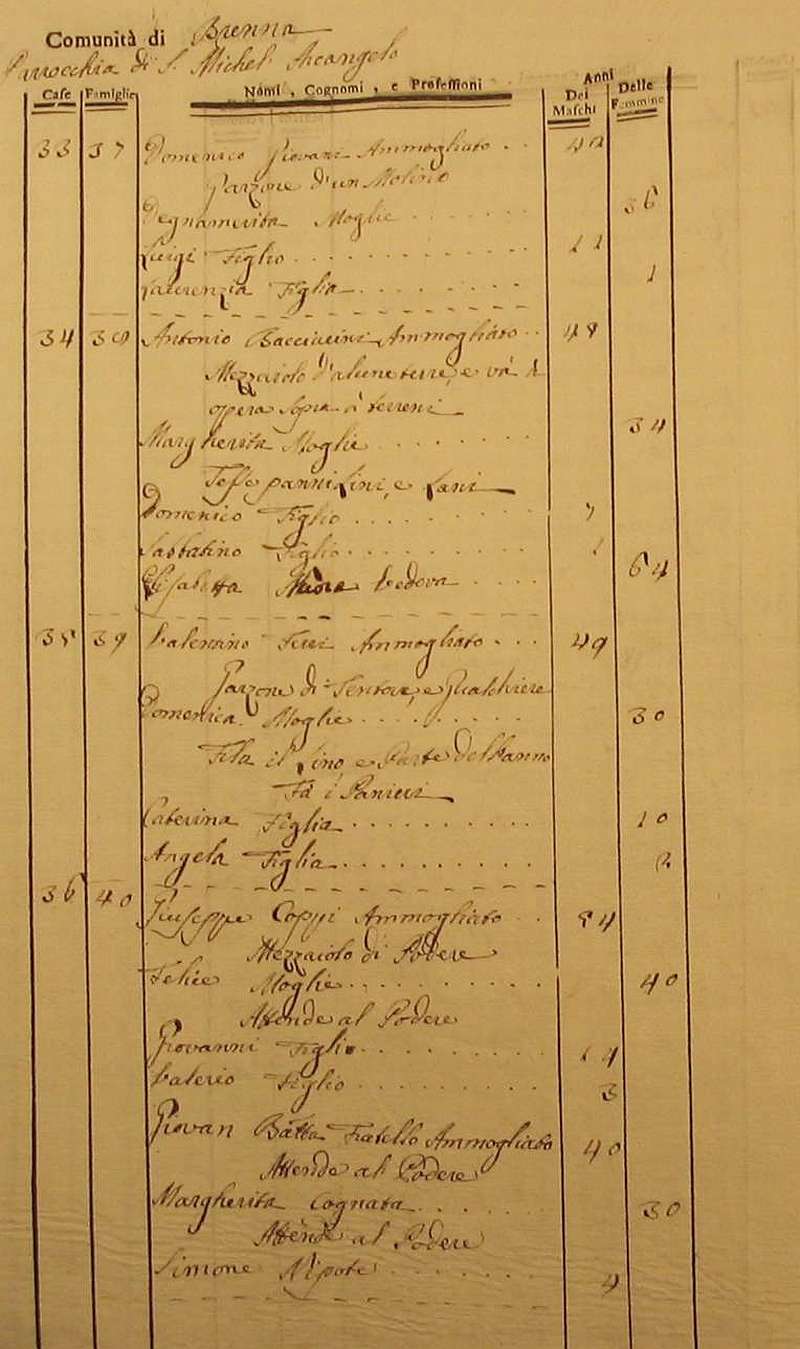 Comunità di Brenna
Parrocchia di S. Michel Arcangelo
Case Famiglie Nomi, Cognomi, e Professioni Anni
Dei Maschi Delle Femmine
33 37 Domenico Ammogliato 40
Garzone d'un Molino
Degnamerita Moglie 36
Luigi Figlio 11
Figlia 1
34 Antonio Ammogliato
Mezzaiolo d'alune terre, e và a
opera sopra a terreni
Margherita Moglie 34
Tesse pannilini, e lani
Domenico Figlio 7
Figlio 1
Elisabetta Madre Vedova 64
35 39 Valentino Ammogliato 49
Garzone di Tintore, e Gualchiere
Domenica Moglie 30
Fila il lino e Parte dell'anno
Fà i Panieri
Caterina Figlia 10
Angela Figlia 2
36 40 Giuseppe Coppi Ammogliato
Mezzaiolo di Podere
Felice Moglie 40
Attende al Podere
Giovanni Figlio 14
Valerio Figlio 3
Giovan Batta Fratello Ammogliato 40
Attende al Podere
Margherita Cognata 30
Attende al Podere
Simone Nipote 4